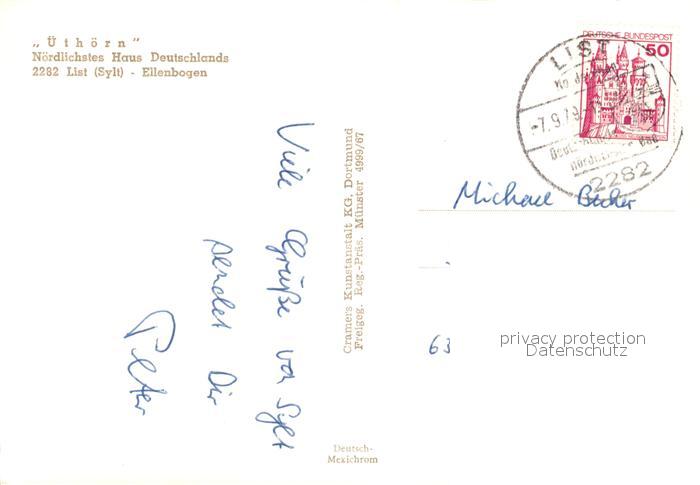 „Üthörn"
Nördlichstes Haus Deutschlands
2282 List (Sylt) - Ellenbogen
Viele Grüße von Sylt
sendet Dir
Peter
Cramers Kunstanstalt KG, Dortmund
Freigeg. Reg.-Präs. Münster 4999/67
Deutsch-
Mexichrom
DEUTSCHE BUNDESPOST
50
LIST
-7.9.79
2282
Michael Becher
63
privacy protection
Datenschutz